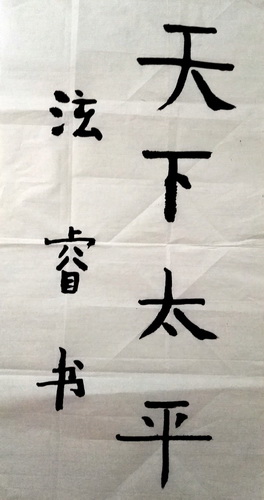 天下太平
泫睿书